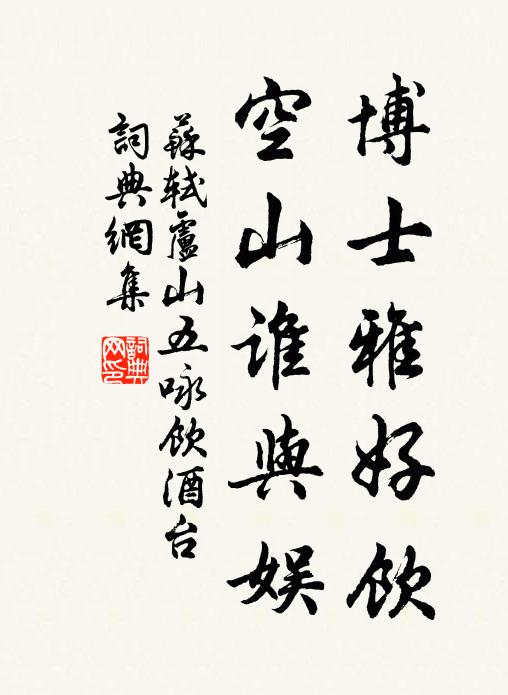 博士雅好飲
空山誰與娛
蘇軾盧山五咏飲酒台
詞典網集
詞典網印